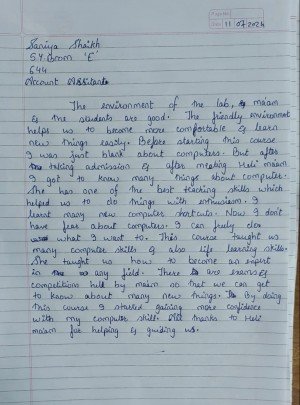 Page No.
Date 11 07 2024
Saniya Shaikh
SY.Bcom 'E'
644
Account Assistant
The environment of the lab, maam
& the students are good. The friendly environment
helps us to become more comfortable & learn
new things easily. Before starting this course
I was just blank about computers. But after
taking admission & after meeting Heli maam
I got to know many things about computer.
She has one of the best teaching skills which
helped us to do things with enthusiasm. I
learnt many new computer shortcuts. Now I don't
have fear about computers. I can freely do
what I want to. This course taught us
many computer skills & also life learning skills.
She taught us how to become an expert
in any field. There are exams &
competitions held by maam so that we can get
to know about many new things. By doing
this course I started gaining more confidence
with my computer skill. thanks to Heli
maam for helping & guiding us.